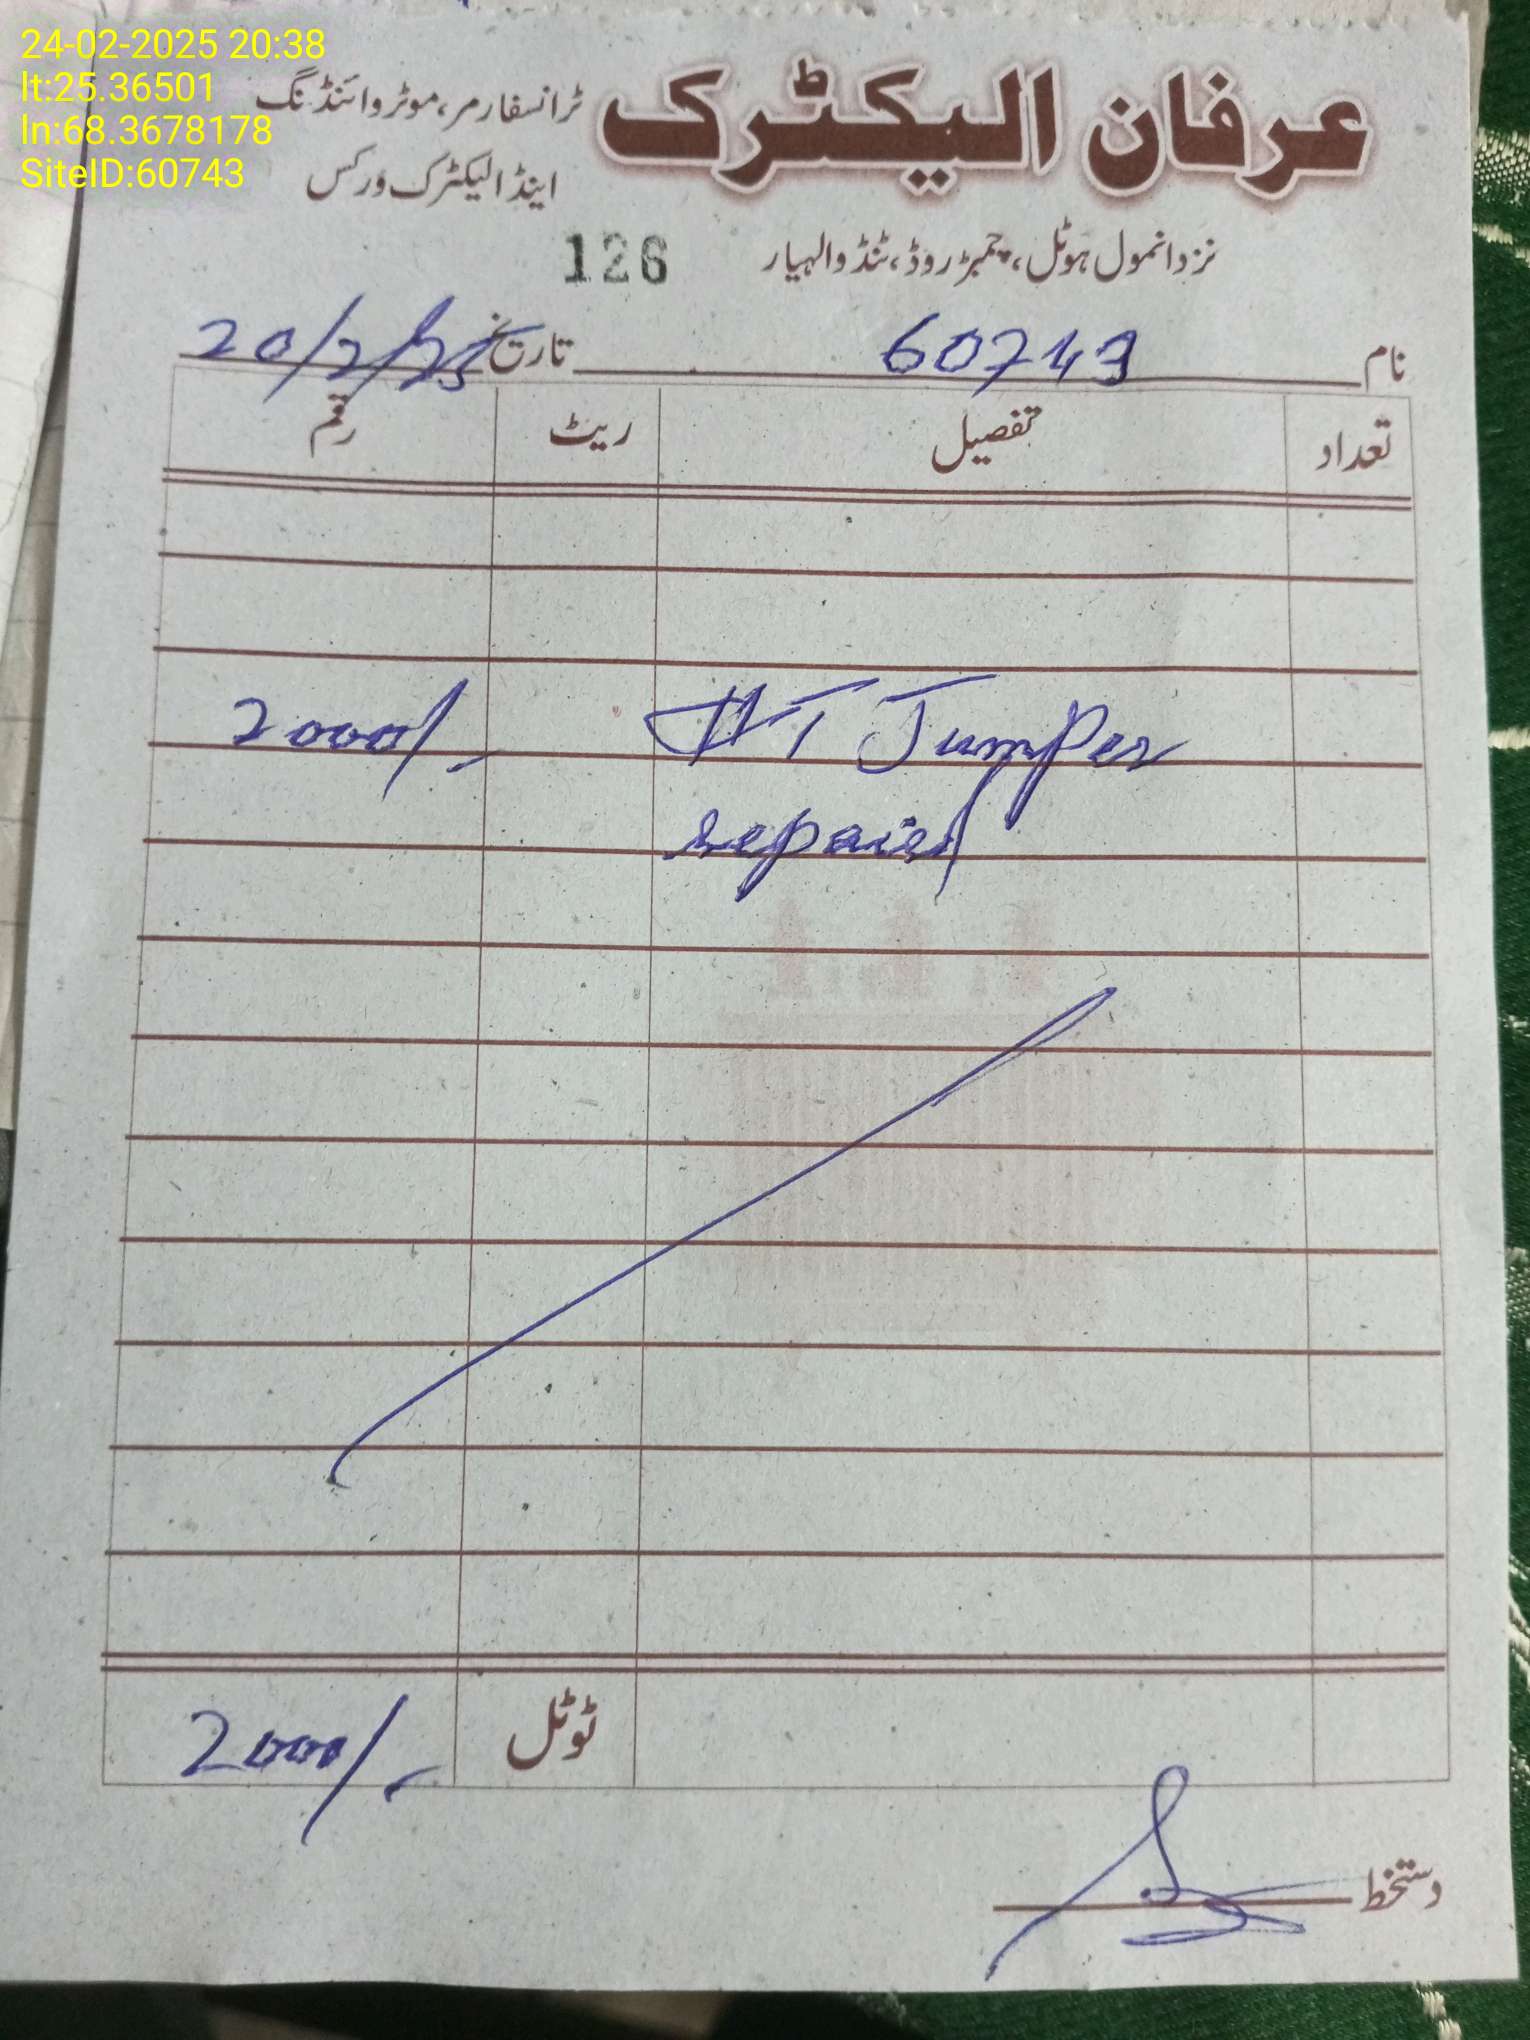 24-02-2025 20:38
lt:25.36501
ln:68.3678178
SiteID:60743
عرفان الیکٹرک
ٹرانسفارمر، موٹر وائنڈنگ
اینڈ الیکٹرک ورکس
نزد انمول ہوٹل، چمبڑ روڈ، ٹنڈوالہیار
126
نام 60743 تاریخ 20/2/25
تعداد تفصیل ریٹ رقم
HT Jumper 2000/-
repaired
ٹوٹل 2000/-
دستخط